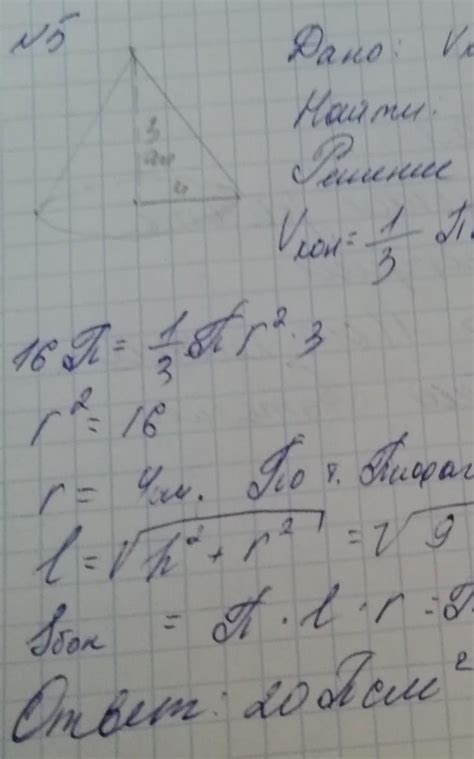 №5
Дано: V
Найти:
Решение
3 см
4
Vкон = 1/3 П
16П = 1/3 П r² · 3
r² = 16
r = 4см. По т. Пифаг
l = √h² + r² = √9
Sбок = П · l · r = П
Ответ: 20П см²